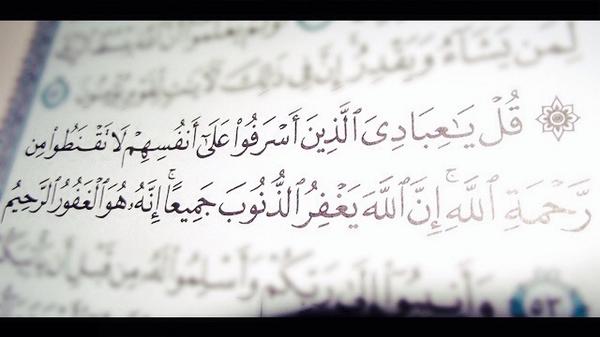 لِمَن يَشَآءُ وَيَقْدِرُ إِنَّ فِى ذَٰلِكَ لَءَايَٰتٍ لِّقَوْمٍ
۞ قُلْ يَٰعِبَادِىَ ٱلَّذِينَ أَسْرَفُوا۟ عَلَىٰٓ أَنفُسِهِمْ لَا تَقْنَطُوا۟ مِن
رَّحْمَةِ ٱللَّهِ ۚ إِنَّ ٱللَّهَ يَغْفِرُ ٱلذُّنُوبَ جَمِيعًا ۚ إِنَّهُۥ هُوَ ٱلْغَفُورُ ٱلرَّحِيمُ
٥٣ وَأَنِيبُوٓا۟ إِلَىٰ رَبِّكُمْ وَأَسْلِمُوا۟ لَهُۥ مِن قَبْلِ أَن